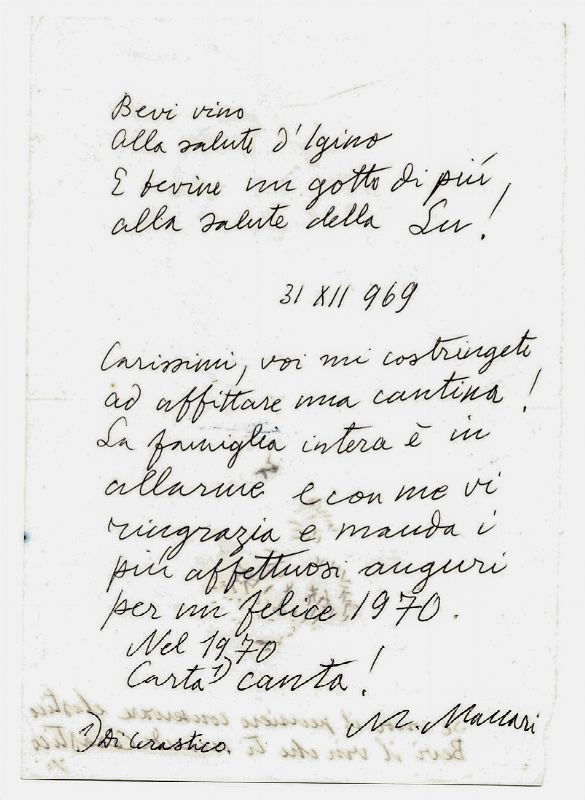 Bevi vino
alla salute d'Igino
E bevine un gotto di più,
alla salute della Lu!
31 XII 969
Carissimi, voi mi costringete
ad affittare una cantina!
La famiglia intera è in
allarme e con me vi
ringrazia e manda i
più affettuosi auguri
per un felice 1970.
Nel 1970
Carta 1) canta!
M. Maccari
1) Di Cerastico.